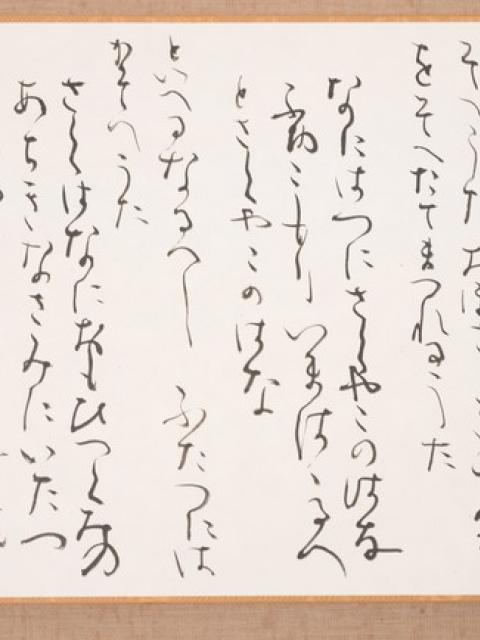 そへうた おほさ
をそへたてまつれるうた
なにはつにさくやこのはな
ふゆこもり いまはゝるへ
とさくやこのはな
といへるなるへし ふたつには
かそへうた
さくはなにおもひつくみの
あちきなさみにいたつ